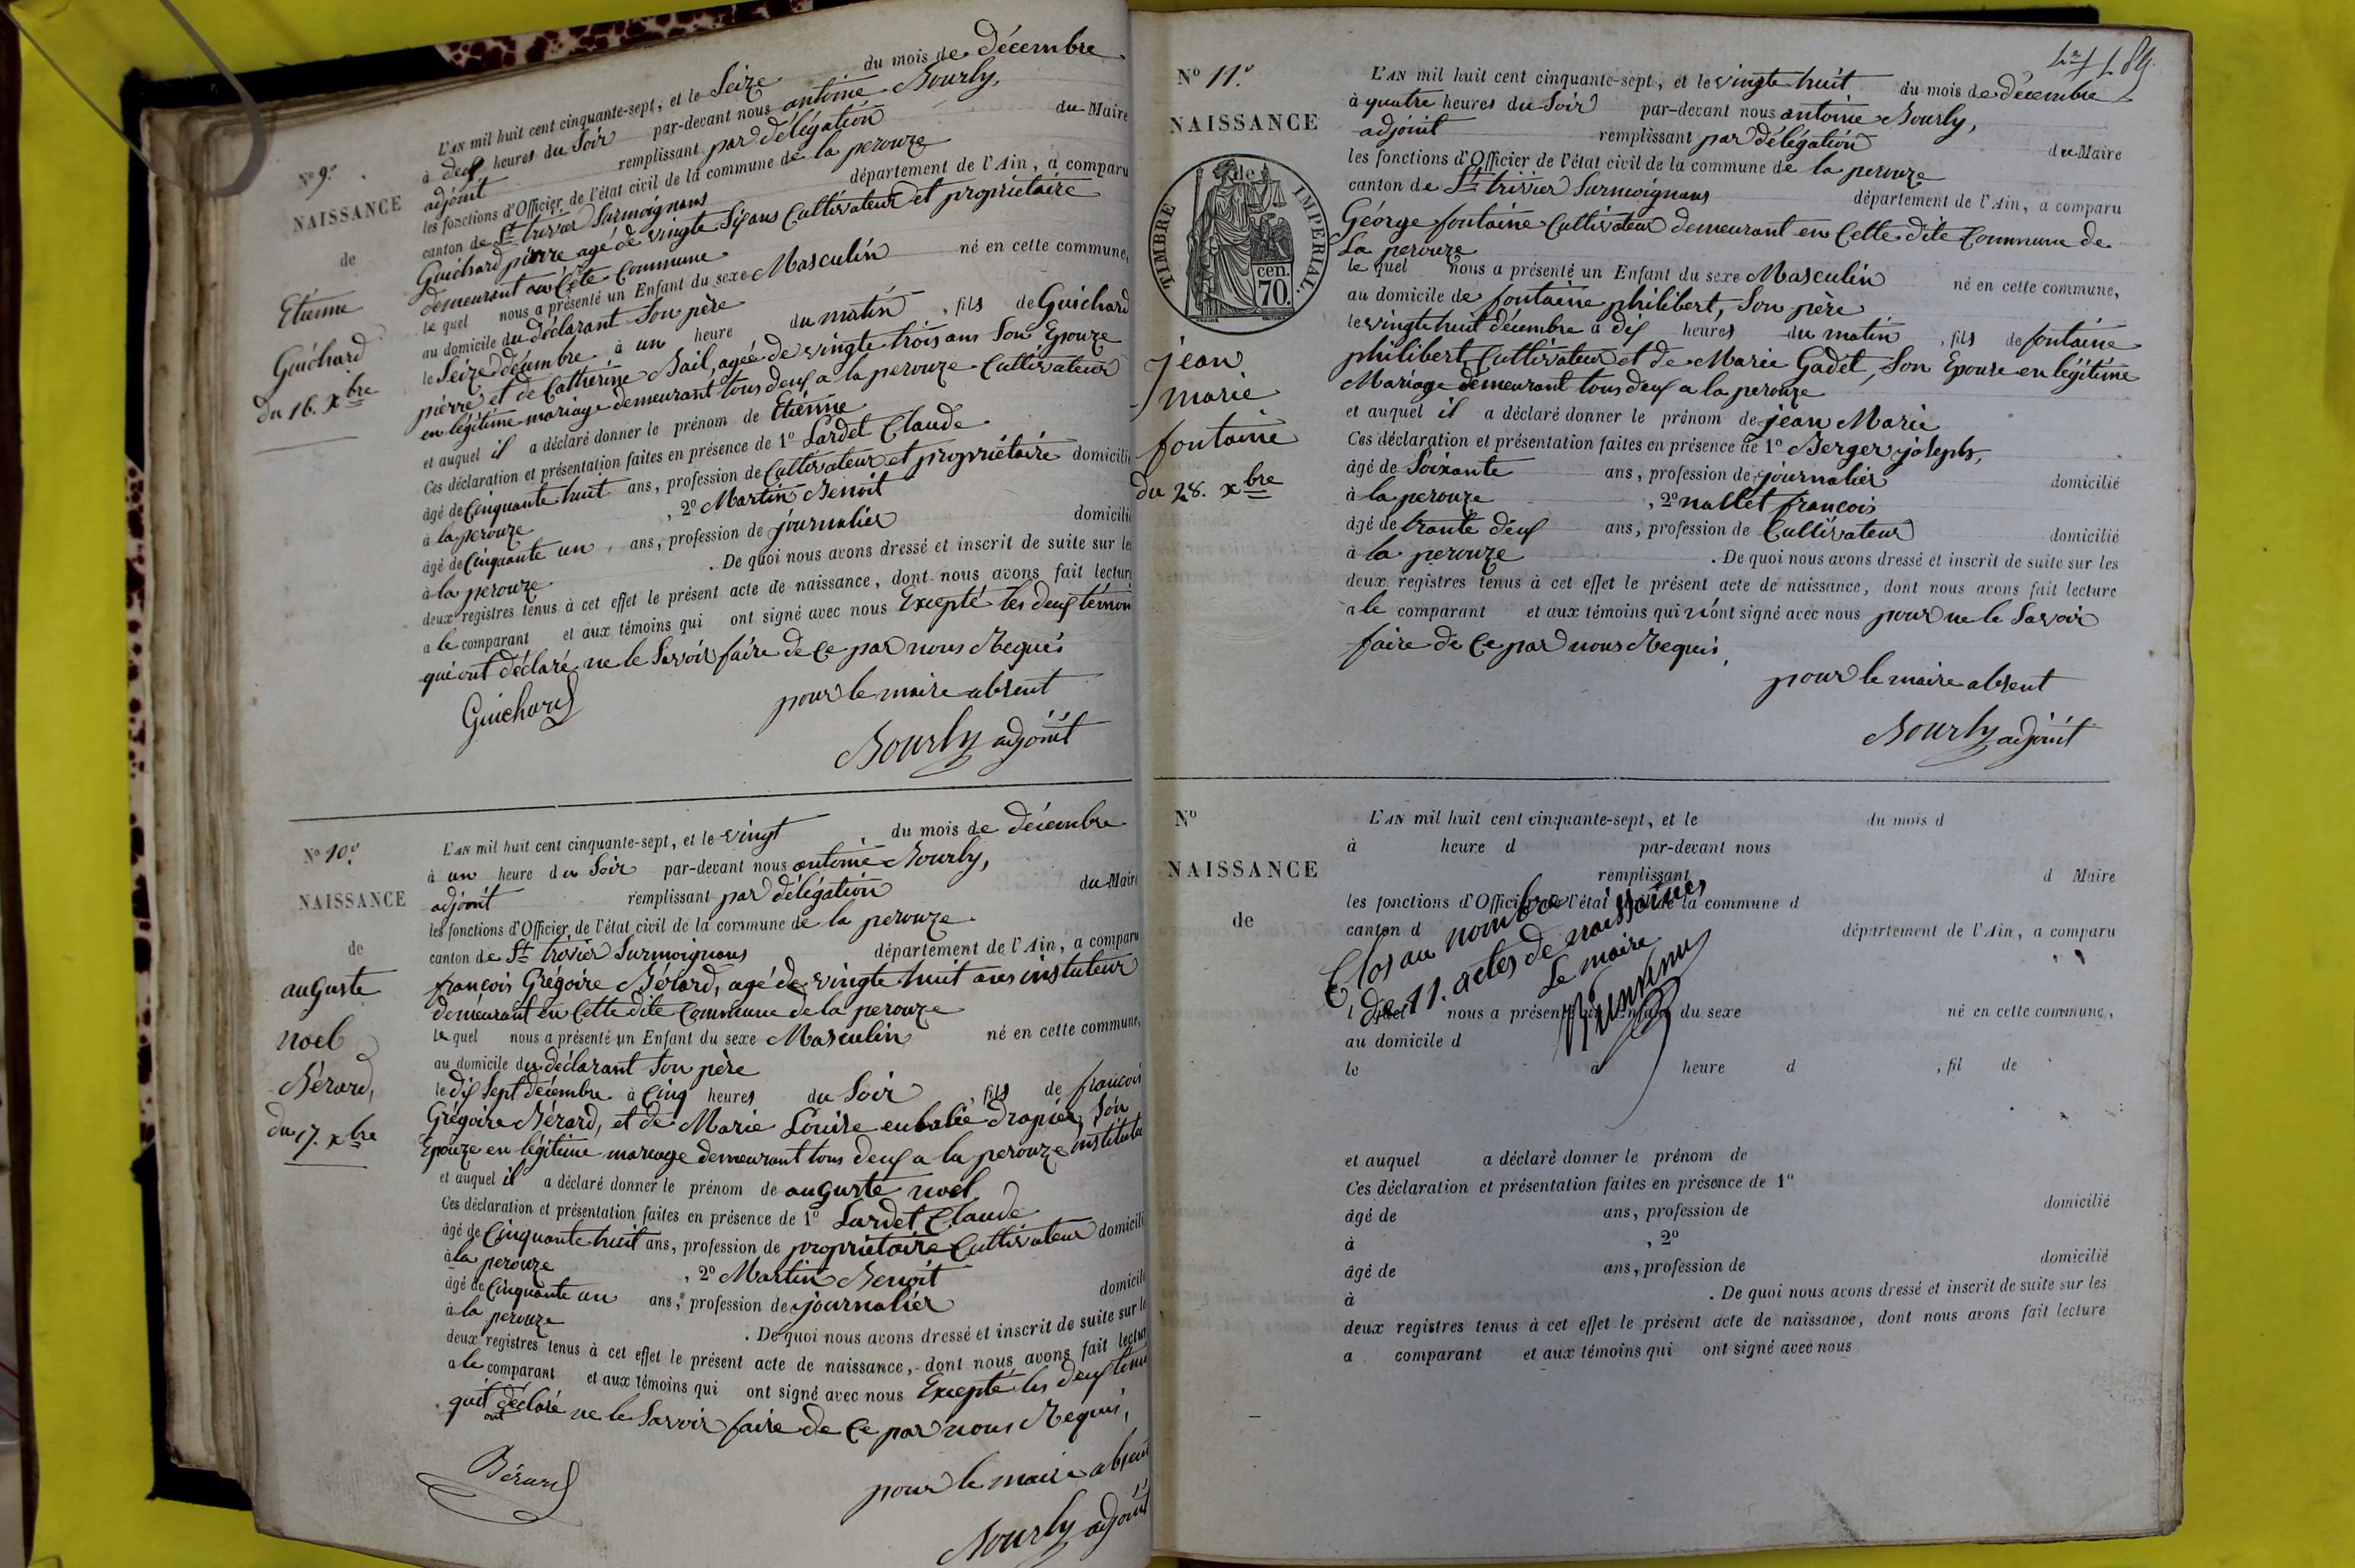 L'AN mil huit cent cinquante-sept, et le Seize du mois de décembre
à deux heures du Soir par-devant nous antoine Bourly,
adjoint remplissant par délégation du Maire
les fonctions d'Officier de l'état civil de la commune de la perouze
canton de St trivier Surmoignans département de l'Ain, a comparu
Guichard pierre agé de vingte Six ans Cultivateur et propriétaire
demeurant en Cete Commune
le quel nous a présenté un Enfant du sexe Masculin né en cette commune,
au domicile du déclarant Son père
le Seize décembre à un heure du matin, fils de Guichard
pierre et de Catherine Bail, agée de vingte trois ans Son Epouze
en légitime mariage demeurant tous deux a la perouze Cultivateur
et auquel il a déclaré donner le prénom de Etienne
Ces déclaration et présentation faites en présence de 1º Lardet Claude
âgé de Cinquante huit ans, profession de Cultivateur et propriétaire domicilié
à la perouze, 2º Martin Benoit
âgé de Cinquante un ans, profession de journalier domicilié
à la perouze. De quoi nous avons dressé et inscrit de suite sur les
deux registres tenus à cet effet le présent acte de naissance, dont nous avons fait lecture
a le comparant et aux témoins qui ont signé avec nous Excepté les deux témoin
qui ont déclaré ne le Savoir faire de Ce par nous Requis
Guichard
pour le maire absent
Bourly adjoint
Nº 9.e
NAISSANCE
de
Etienne
Guichard
du 16. Xbre
L'AN mil huit cent cinquante-sept, et le vingt du mois de décembre
à un heure du Soir par-devant nous antoine Bourly,
adjoint remplissant par délégation du Maire
les fonctions d'Officier de l'état civil de la commune de la perouze
canton de St trivier Surmoignans département de l'Ain, a comparu
françois Grégoire Bérard, agé de vingte huit ans instuteur
demeurant en Cette dite Commune de la perouze
le quel nous a présenté un Enfant du sexe Masculin né en cette commune,
au domicile du déclarant Son père
le dix Sept décembre à Cinq heures du Soir, fils de francois
Grégoire Bérard, et de Marie Louise eubalie Drapier, Son
Epouze en légitime mariage demeurant tous deux a la perouze
et auquel il a déclaré donner le prénom de auguste noel
Ces déclaration et présentation faites en présence de 1º Lardet Claude
âgé de Cinquante huit ans, profession de propriétaire Cultivateur domicilié
à la perouze, 2º Martin Benoit
âgé de Cinquante un ans, profession de journalier domicilié
à la perouze. De quoi nous avons dressé et inscrit de suite sur les
deux registres tenus à cet effet le présent acte de naissance, dont nous avons fait lecture
a le comparant et aux témoins qui ont signé avec nous Excepté les deux
qui ont déclaré ne le Savoir faire de Ce par nous Requis,
Bérard
pour le maire absent
Bourly adjoint
Nº 10.e
NAISSANCE
de
auguste
noel
Bérard,
du 17. xbre
89
Nº 11.e
NAISSANCE
de
TIMBRE IMPERIAL.
70. cen.
jean
marie
fontaine
du 28. xbre
L'AN mil huit cent cinquante-sept, et le vingte huit du mois de décembre
à quatre heures du Soir par-devant nous antoine Bourly,
adjoint remplissant par délégation du Maire
les fonctions d'Officier de l'état civil de la commune de la perouze
canton de St trivier Surmoignans département de l'Ain, a comparu
Géorge fontaine Cultivateur demeurant en Cette dite Commune de
La perouze
le quel nous a présenté un Enfant du sexe Masculin né en cette commune,
au domicile de fontaine philibert, Son père
le vingte huit décembre à dix heures du matin, fils de fontaine
philibert Cultivateur et de Marie Gadet, Son Epouse en légitime
Mariage demeurant tous deux a la perouze
et auquel il a déclaré donner le prénom de jean Marie
Ces déclaration et présentation faites en présence de 1º Berger joseph,
âgé de Soixante ans, profession de journalier domicilié
à la perouze, 2º nallet francois
âgé de trante deux ans, profession de Cultivateur domicilié
à la perouze. De quoi nous avons dressé et inscrit de suite sur les
deux registres tenus à cet effet le présent acte de naissance, dont nous avons fait lecture
a le comparant et aux témoins qui n'ont signé avec nous pour ne le Savoir
faire de Ce par nous Requis,
pour le maire absent
Bourly adjoint
Nº
NAISSANCE
de
L'AN mil huit cent cinquante-sept, et le du mois d
à heure d par-devant nous
remplissant d Maire
les fonctions d'Officier de l'état civil de la commune d
canton d département de l'Ain, a comparu
Clos au nombre
de 11. actes de naissances
Le maire
quel nous a présenté un Enfant du sexe né en cette commune,
au domicile d
le à heure d, fil de
et auquel a déclaré donner le prénom de
Ces déclaration et présentation faites en présence de 1º
âgé de ans, profession de domicilié
à, 2º
âgé de ans, profession de domicilié
à. De quoi nous avons dressé et inscrit de suite sur les
deux registres tenus à cet effet le présent acte de naissance, dont nous avons fait lecture
a comparant et aux témoins qui ont signé avec nous